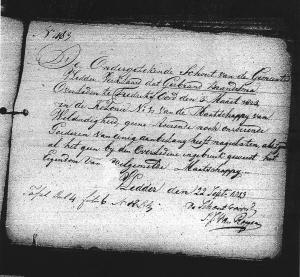 De Ondergetekende Schout van de Gemeente
Vledder Verklaard dat Gerbrand Brandsma
Overleden te Frederiks Oord den 5 Maart 1823
in de Kolonie No. 2 van de Maatschappij van
Weldadigheid, geene roerende noch onroerende
Goederen van eenig aanbelang heeft nagelaten, als zijnde
al het geen bij de Overledene in gebruik geweest het
Eigendom van welgemelde Maatschappij
Vledder den 22 Sept. 1823
De Schout voornd.
Van Royen